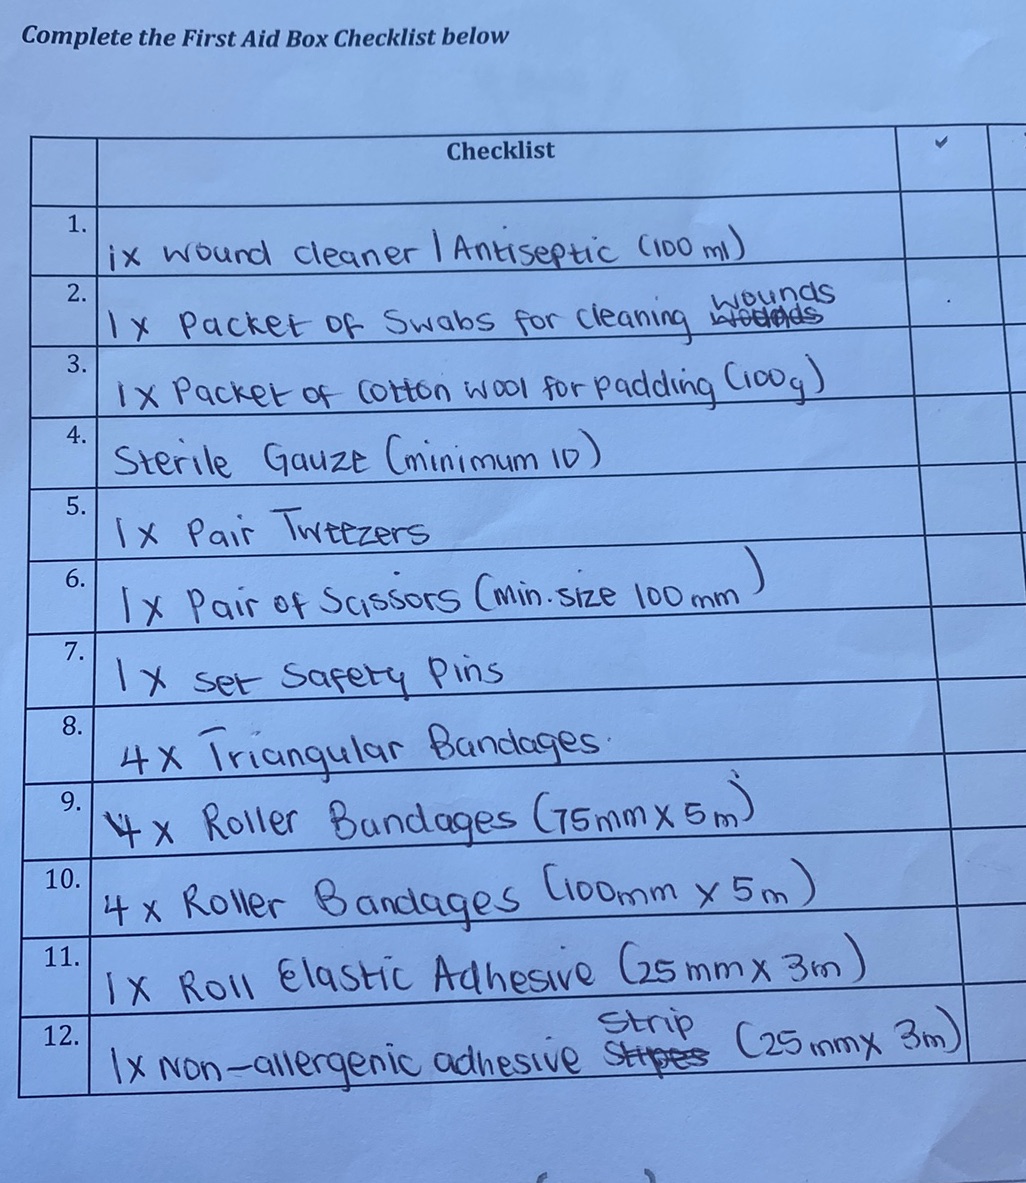 Complete the First Aid Box Checklist below
Checklist ✓
1. 1x wound cleaner / Antiseptic (100 ml)
2. 1x Packet of Swabs for cleaning wounds
3. 1x Packet of Cotton wool for padding (100g)
4. Sterile Gauze (minimum 10)
5. 1x Pair Tweezers
6. 1x Pair of Scissors (min. size 100mm)
7. 1x set Safety Pins
8. 4x Triangular Bandages.
9. 4x Roller Bandages (75mm x 5m)
10. 4x Roller Bandages (100mm x 5m)
11. 1x Roll Elastic Adhesive (25mm x 3m)
12. 1x Non-allergenic adhesive Strip (25mm x 3m)